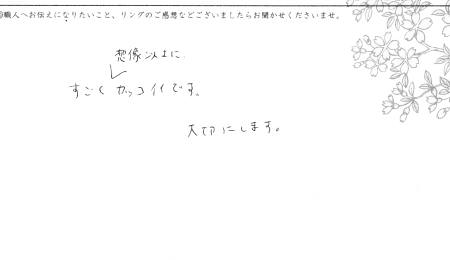 ◎職人へお伝えになりたいこと、リングのご感想などございましたらお聞かせくださいませ。
想像以上に
すごくカッコイイです。
大切にします。